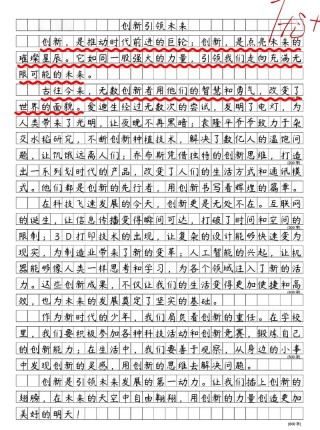 创新引领未来
创新，是推动时代前进的巨轮；创新，是点亮未来的
璀璨星辰。它如同一股强大的力量，引领我们走向充满无
限可能的未来。
古往今来，无数创新者用他们的智慧和勇气，改变了
世界的面貌。爱迪生经过无数次的尝试，发明了电灯，为
人类带来了光明，让夜晚不再黑暗；袁隆平爷爷致力于杂
交水稻研究，不断创新种植技术，解决了数亿人的温饱问
题，让饥饿远离人们；乔布斯凭借独特的创新思维，打造
出一系列划时代的产品，改变了人们的生活方式和通讯模
式。他们都是创新的先行者，用创新书写着辉煌的篇章。
在科技飞速发展的今天，创新更是无处不在。互联网
的诞生，让信息传播变得瞬间可达，打破了时间和空间的
限制；3D打印技术的出现，让复杂的设计能够快速变为
现实，为制造业带来了新的变革；人工智能的兴起，让机
器能够像人类一样思考和学习，为各个领域注入了新的活
力。这些创新成果，不仅让我们的生活变得更加便捷和高
效，也为未来的发展奠定了坚实的基础。
作为新时代的少年，我们肩负着创新的重任。在学校
里，我们要积极参加各种科技活动和创新竞赛，锻炼自己
的创新能力；在生活中，我们要善于观察，从身边的小事
中发现创新的灵感，用创新的思维去解决问题。
创新是引领未来发展的第一动力。让我们插上创新的
翅膀，在未来的天空中自由翱翔，用创新的力量创造更加
美好的明天！